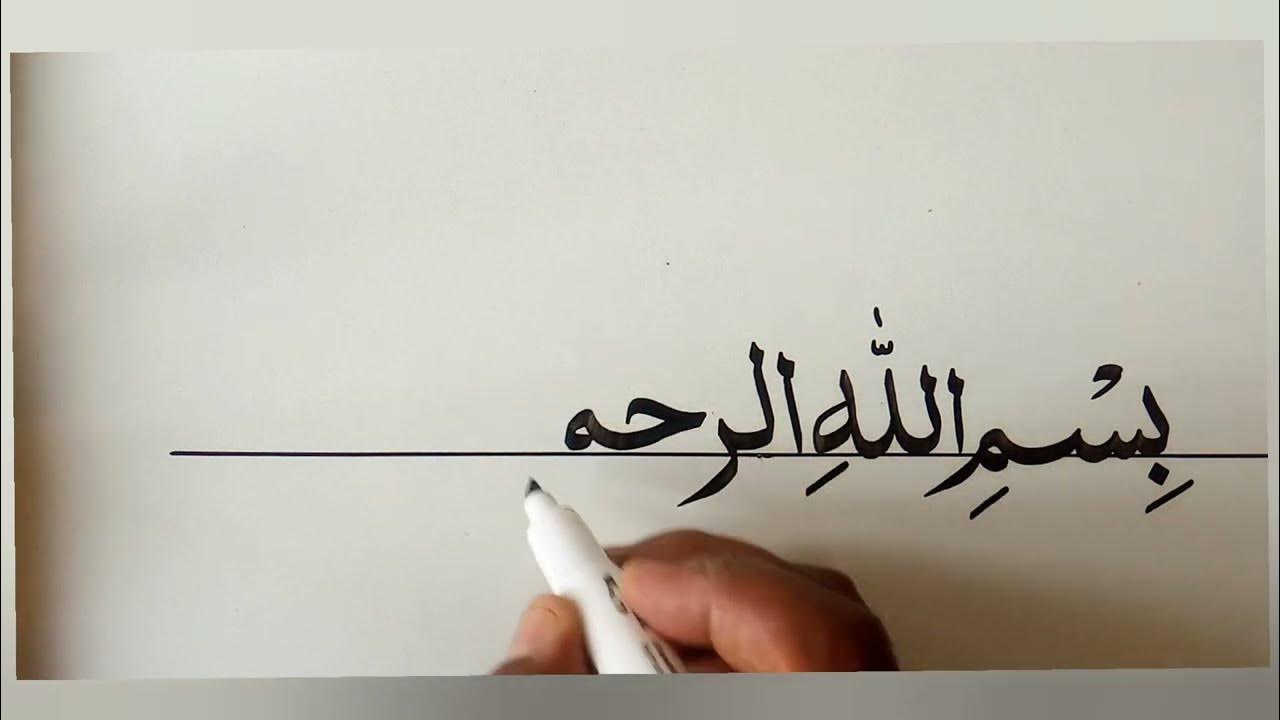 بِسْمِ اللّٰهِ الرحمـ